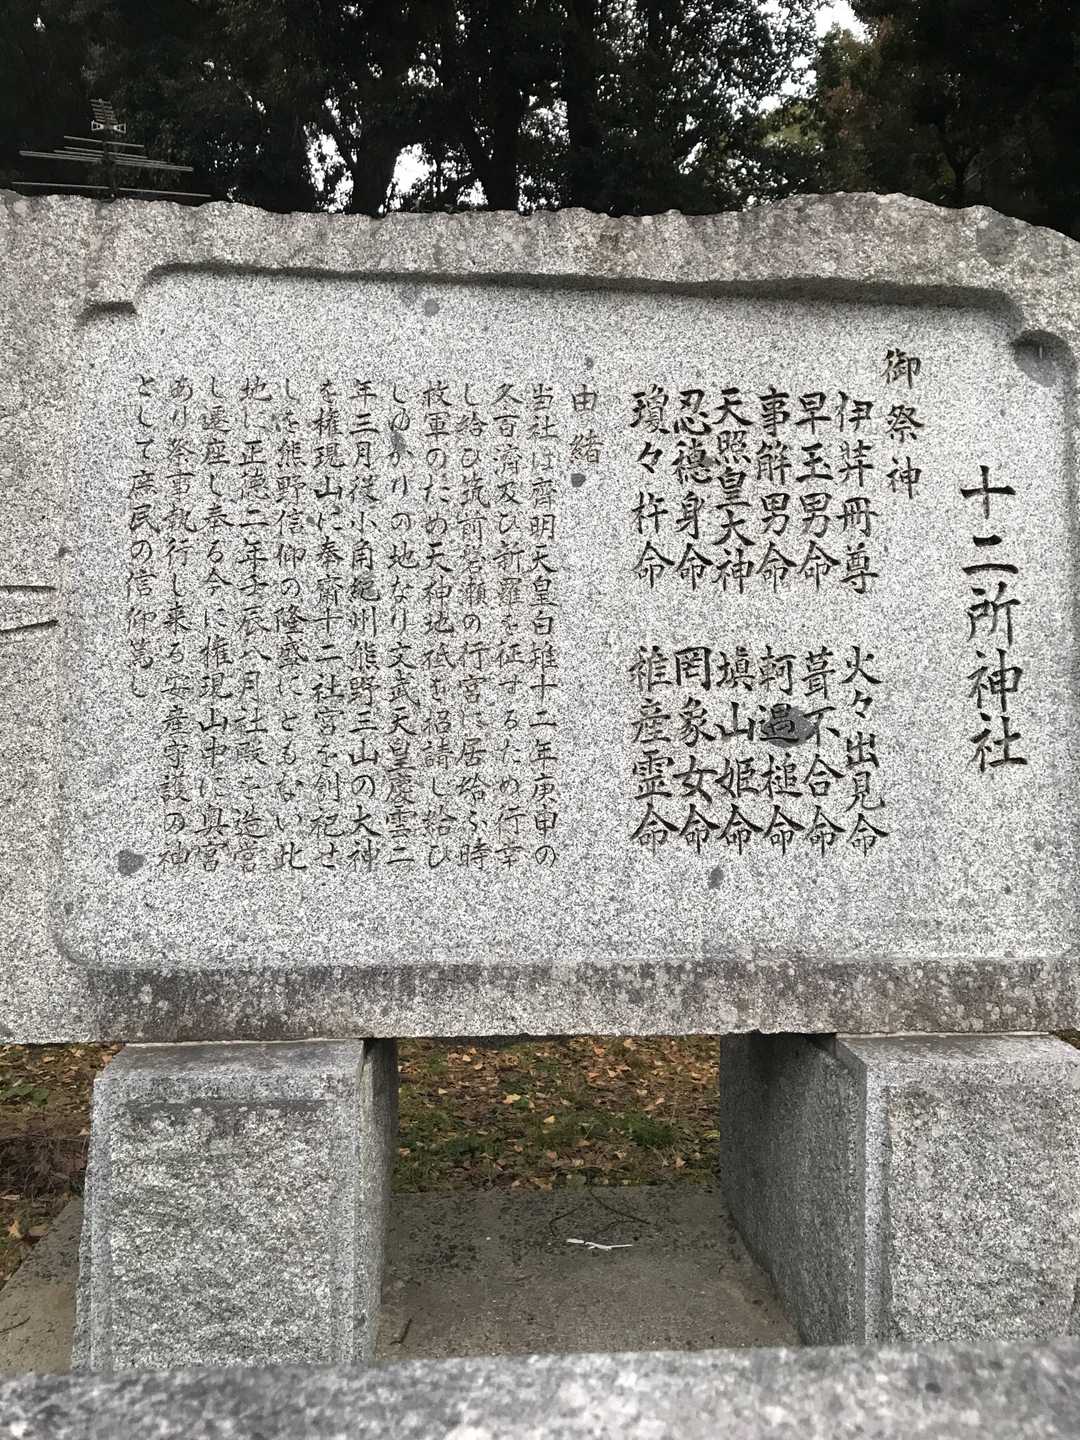 十二所神社
御祭神
伊弉冊尊 火々出見命
早玉男命 葺不合命
事解男命 軻遇槌命
天照皇大神 埴山姫命
忍穂身命 罔象女命
瓊々杵命 稚産霊命
由緒
当社は齊明天皇白雉十二年庚申の
久百済及び新羅を征するため行幸
し給ひ筑前磐瀬の行宮に居給ふ時
救軍のため天神地祗を招請し給ひ
しゆかりの地なり文武天皇慶雲二
年三月役小角紀州熊野三山の大神
を権現山に奉齋十二社宮を創祀せ
しを熊野信仰の隆盛にともない此
地に正徳二年壬辰八月社殿を造営
し遷座し奉る今に権現山中に奥宮
あり祭事執行し来る安産守護の神
として庶民の信仰篤し